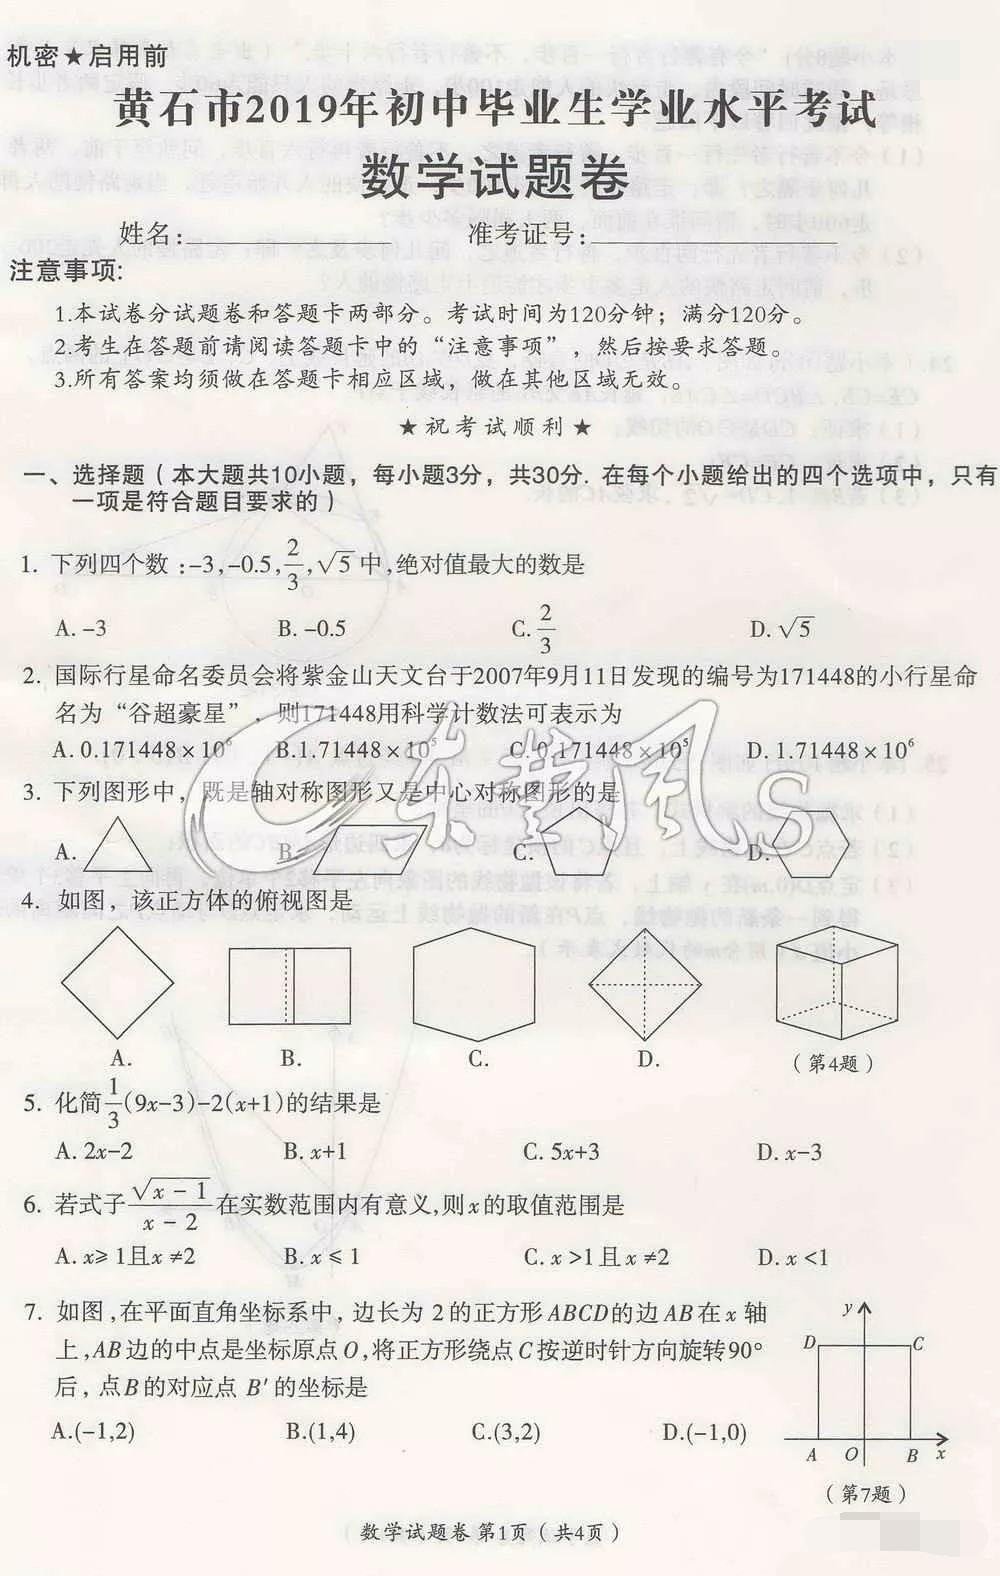 机密★启用前
黄石市2019年初中毕业生学业水平考试
数学试题卷
姓名:________ 准考证号:________
注意事项:
1.本试卷分试题卷和答题卡两部分。考试时间为120分钟；满分120分。
2.考生在答题前请阅读答题卡中的“注意事项”，然后按要求答题。
3.所有答案均须做在答题卡相应区域，做在其他区域无效。
★祝考试顺利★
一、选择题（本大题共10小题，每小题3分，共30分. 在每个小题给出的四个选项中，只有
一项是符合题目要求的）
1. 下列四个数：-3,-0.5,2/3,√5中,绝对值最大的数是
A. -3 B. -0.5 C. 2/3 D. √5
2. 国际行星命名委员会将紫金山天文台于2007年9月11日发现的编号为171448的小行星命
名为“谷超豪星”，则171448用科学计数法可表示为
A. 0.171448×10⁶ B.1.71448×10⁵ C. 0.171448×10⁵ D. 1.71448×10⁶
3. 下列图形中，既是轴对称图形又是中心对称图形的是
A. B. C. D.
4. 如图，该正方体的俯视图是
A. B. C. D. （第4题）
5. 化简1/3(9x-3)-2(x+1)的结果是
A. 2x-2 B. x+1 C. 5x+3 D. x-3
6. 若式子√(x-1)/(x-2)在实数范围内有意义,则x的取值范围是
A. x≥1且x≠2 B. x≤1 C. x>1且x≠2 D. x<1
7. 如图,在平面直角坐标系中，边长为2的正方形ABCD的边AB在x轴
上,AB边的中点是坐标原点O,将正方形绕点C按逆时针方向旋转90°
后，点B的对应点B′的坐标是
A.(-1,2) B.(1,4) C.(3,2) D.(-1,0)
y
D C
A O B x
（第7题）
数学试题卷 第1页（共4页）